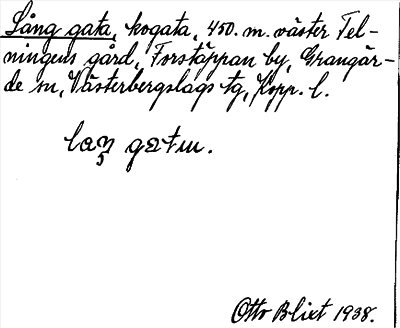 Lång gata, kogata, 450. m. väster Tel-
ningens gård, Forstäppan by, Grangär-
de sn, Västerbergslags tg, Kopp. l.
gatın.
Otto Blixt 1938.